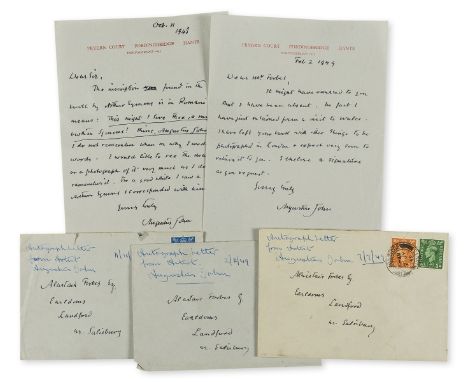 Oct. 11
1948
FRYERN COURT FORDINGBRIDGE HANTS
Dear Sir,
The inscription found in the
book by Arthur Symons is in Romani
means: This might I love thee
Symons! Augustus John
I do not remember when or why I
words. I would like to see the
or a photograph of it very much as I do
remember it. I
Arthur Symons I corresponded with
Yours truly
Augustus John
FRYERN COURT FORDINGBRIDGE HANTS
Feb. 2 1949
Dear Mr Forbes,
It might have occurred to you
that I have been absent. In fact I
have just returned from a visit to
I have left your book with other things to be
photographed in London & expect very soon to
return it to you. I enclose a
as you request.
Yours truly
Augustus John
Autograph letter
from Artist
Augustus John
Alastair Forbes Esq
Earldoms
Landford
nr. Salisbury
Autograph letter
from Artist
Augustus John
Alastair Forbes Esq
Earldoms
Landford
nr. Salisbury
Autograph letter
from Artist
Augustus John
Alastair Forbes Esq
Earldoms
Landford
nr. Salisbury